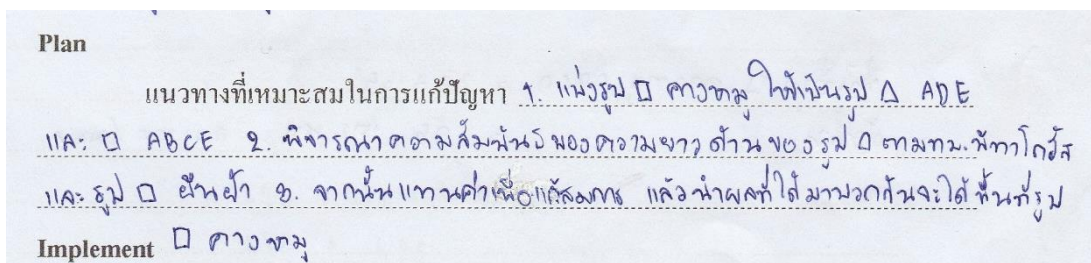 Plan
แนวทางที่เหมาะสมในการแก้ปัญหา 1. แบ่งรูป □ คางหมู ให้เป็นรูป △ ADE
และ □ ABCE 2. พิจารณาความสัมพันธ์ของความยาวด้านของรูป △ ตามทบ.พีทาโกรัส
และรูป □ ผืนผ้า 3. จากนั้นแทนค่าเพื่อแก้สมการ แล้วนำผลที่ได้มาบวกกันจะได้พื้นที่รูป
Implement □ คางหมู